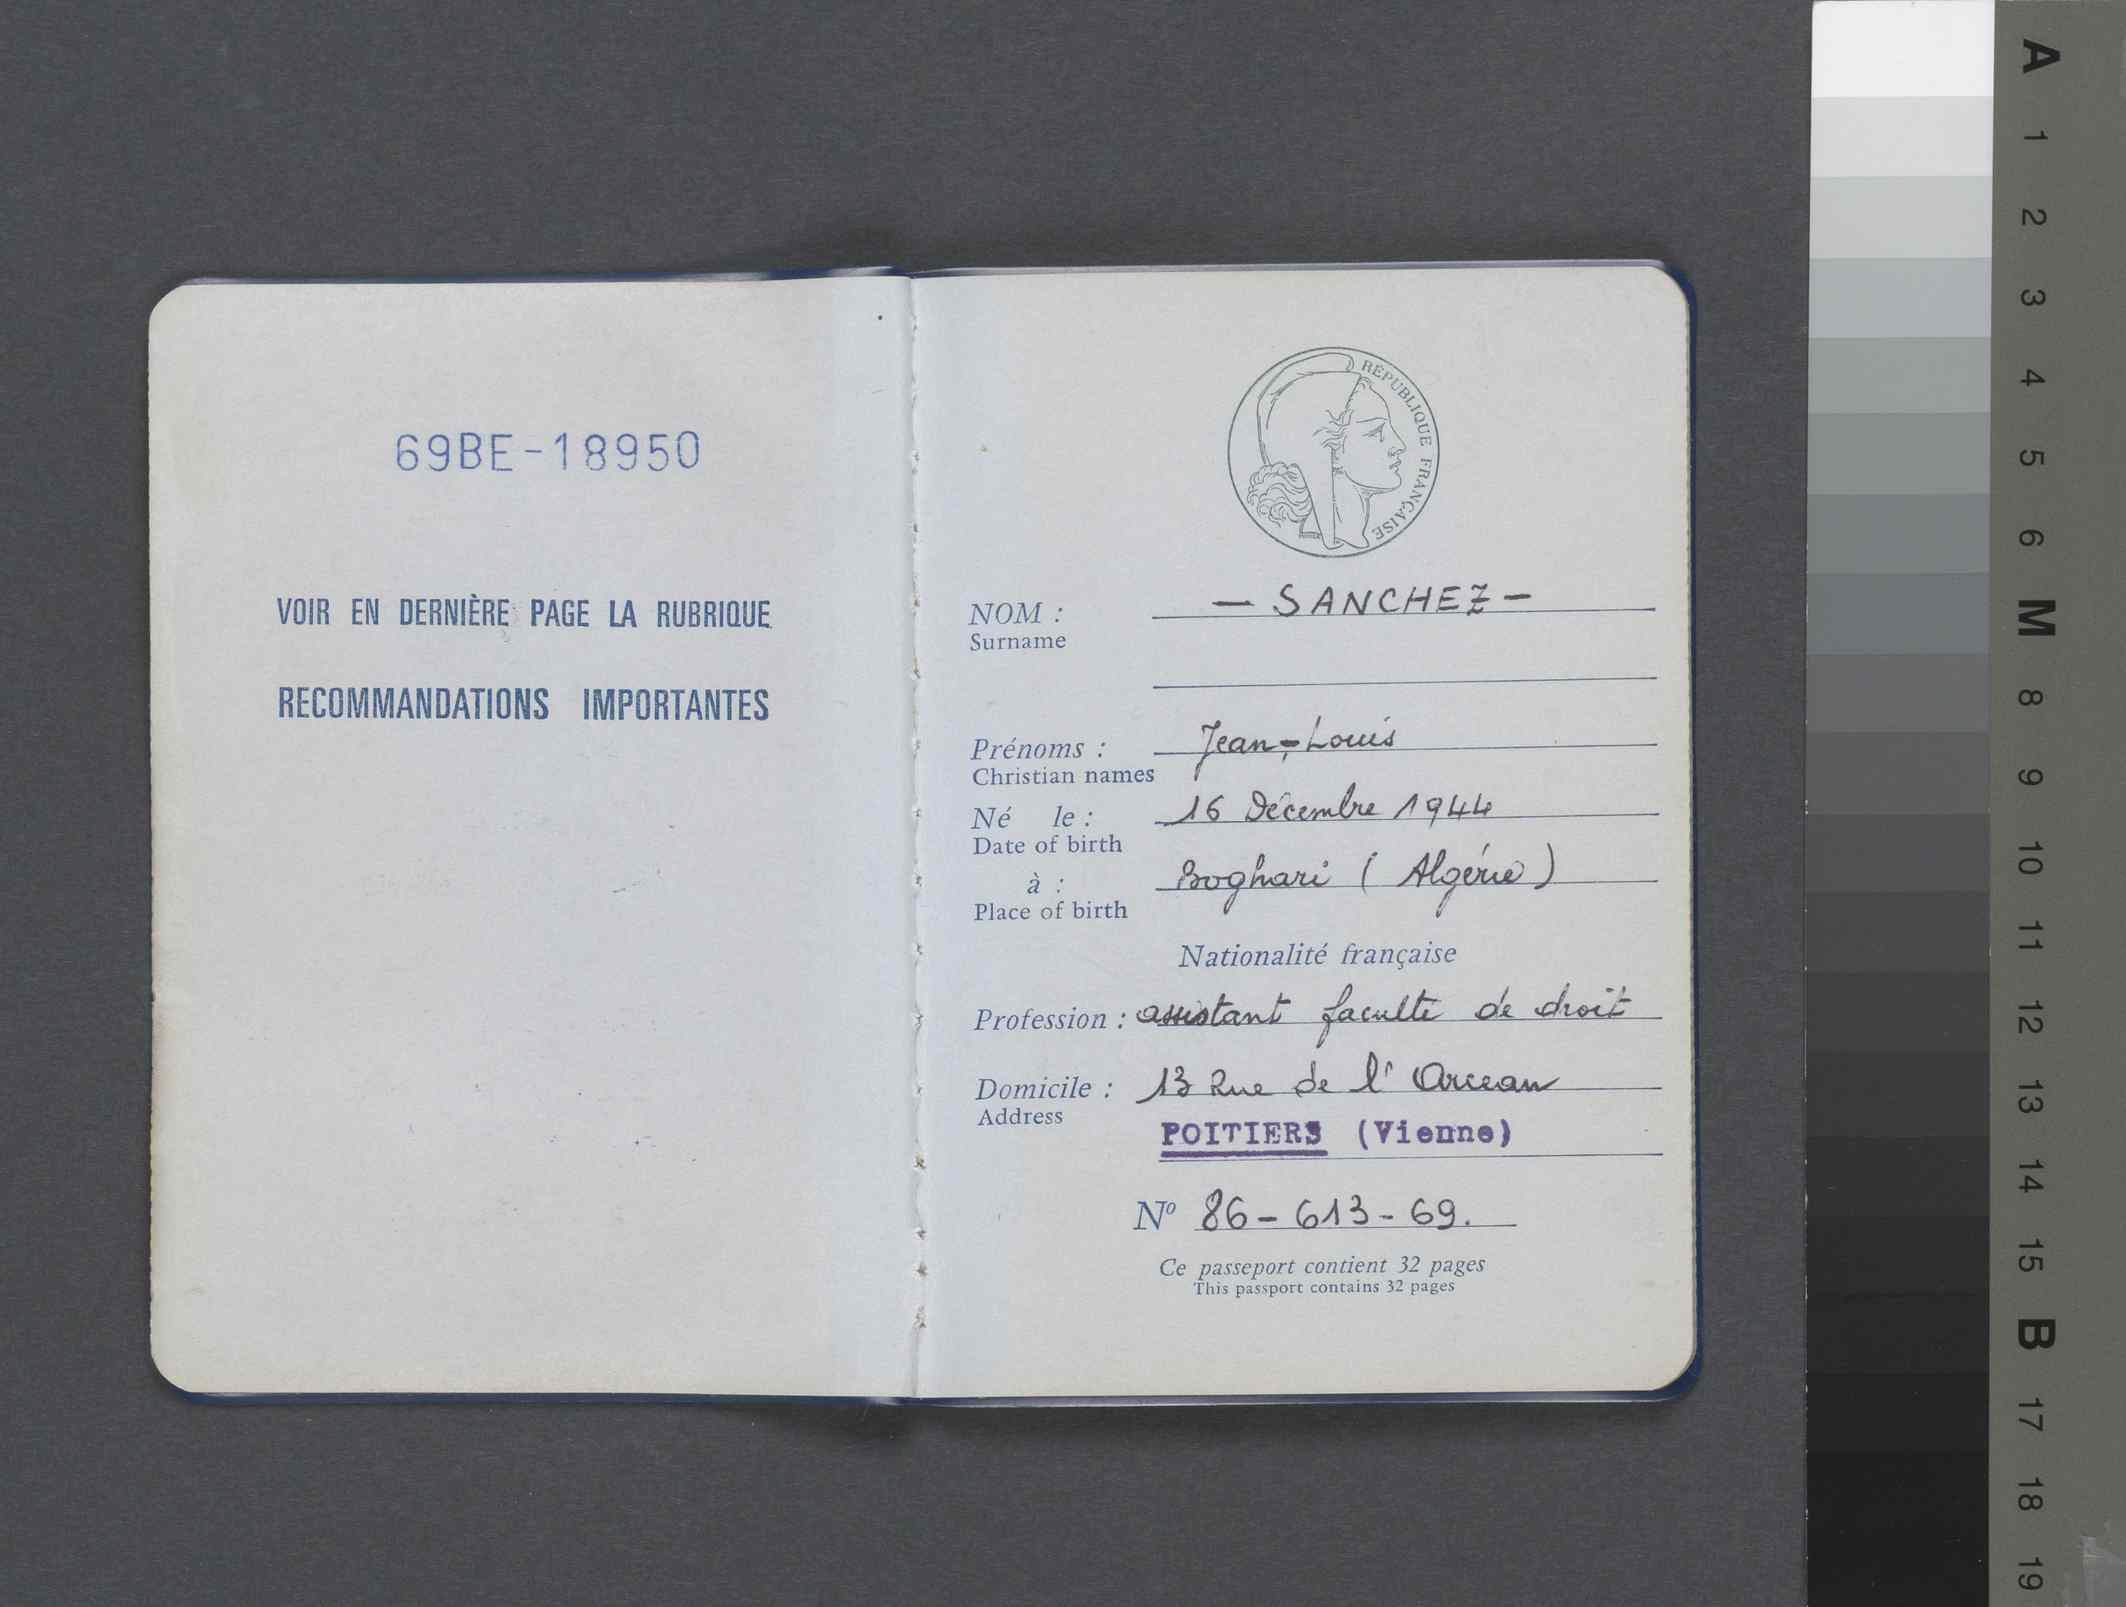 69BE-18950
VOIR EN DERNIÈRE PAGE LA RUBRIQUE
RECOMMANDATIONS IMPORTANTES
RÉPUBLIQUE FRANÇAISE
NOM : — SANCHEZ —
Surname
Prénoms : Jean-Louis
Christian names
Né le : 16 Décembre 1944
Date of birth
à : Boghari ( Algérie )
Place of birth
Nationalité française
Profession : assistant faculté de droit
Domicile : 13 Rue de l' Arceau
Address
POITIERS (Vienne)
Nº 86-613-69.
Ce passeport contient 32 pages
This passport contains 32 pages
A
1
2
3
4
5
6
M
8
9
10
11
12
13
14
15
B
17
18
19